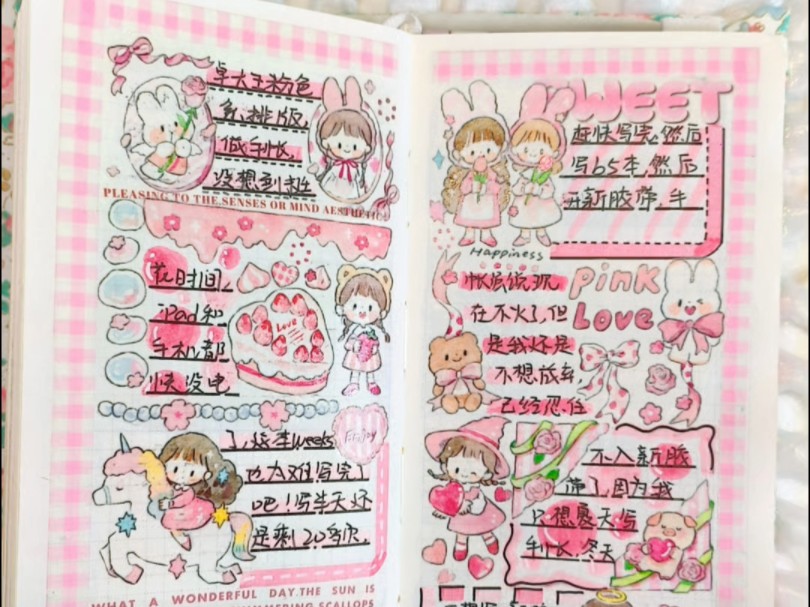 早大王粉色
多,排版,
低手帐,
没想到挂
PLEASING TO THE SENSES OR MIND AESTHETIC
花时间,
iPad和
手机都
快没电
了,烧本weeks
也太难写完了
吧!写半天还
是剩20多页,
Enjoy
WHAT A WONDERFUL DAY.THE SUN IS
SHIMMERING.SCALLOPS
SWEET
赶快写完,然后
写b5本,然后
开新胶带,手
Happiness
帐虽饭,现
在不火了,但
是我还是
不想放弃,
已经忍住
pink
Love
不入新胶
带了,因为我
只想夏天写
手帐,冬天